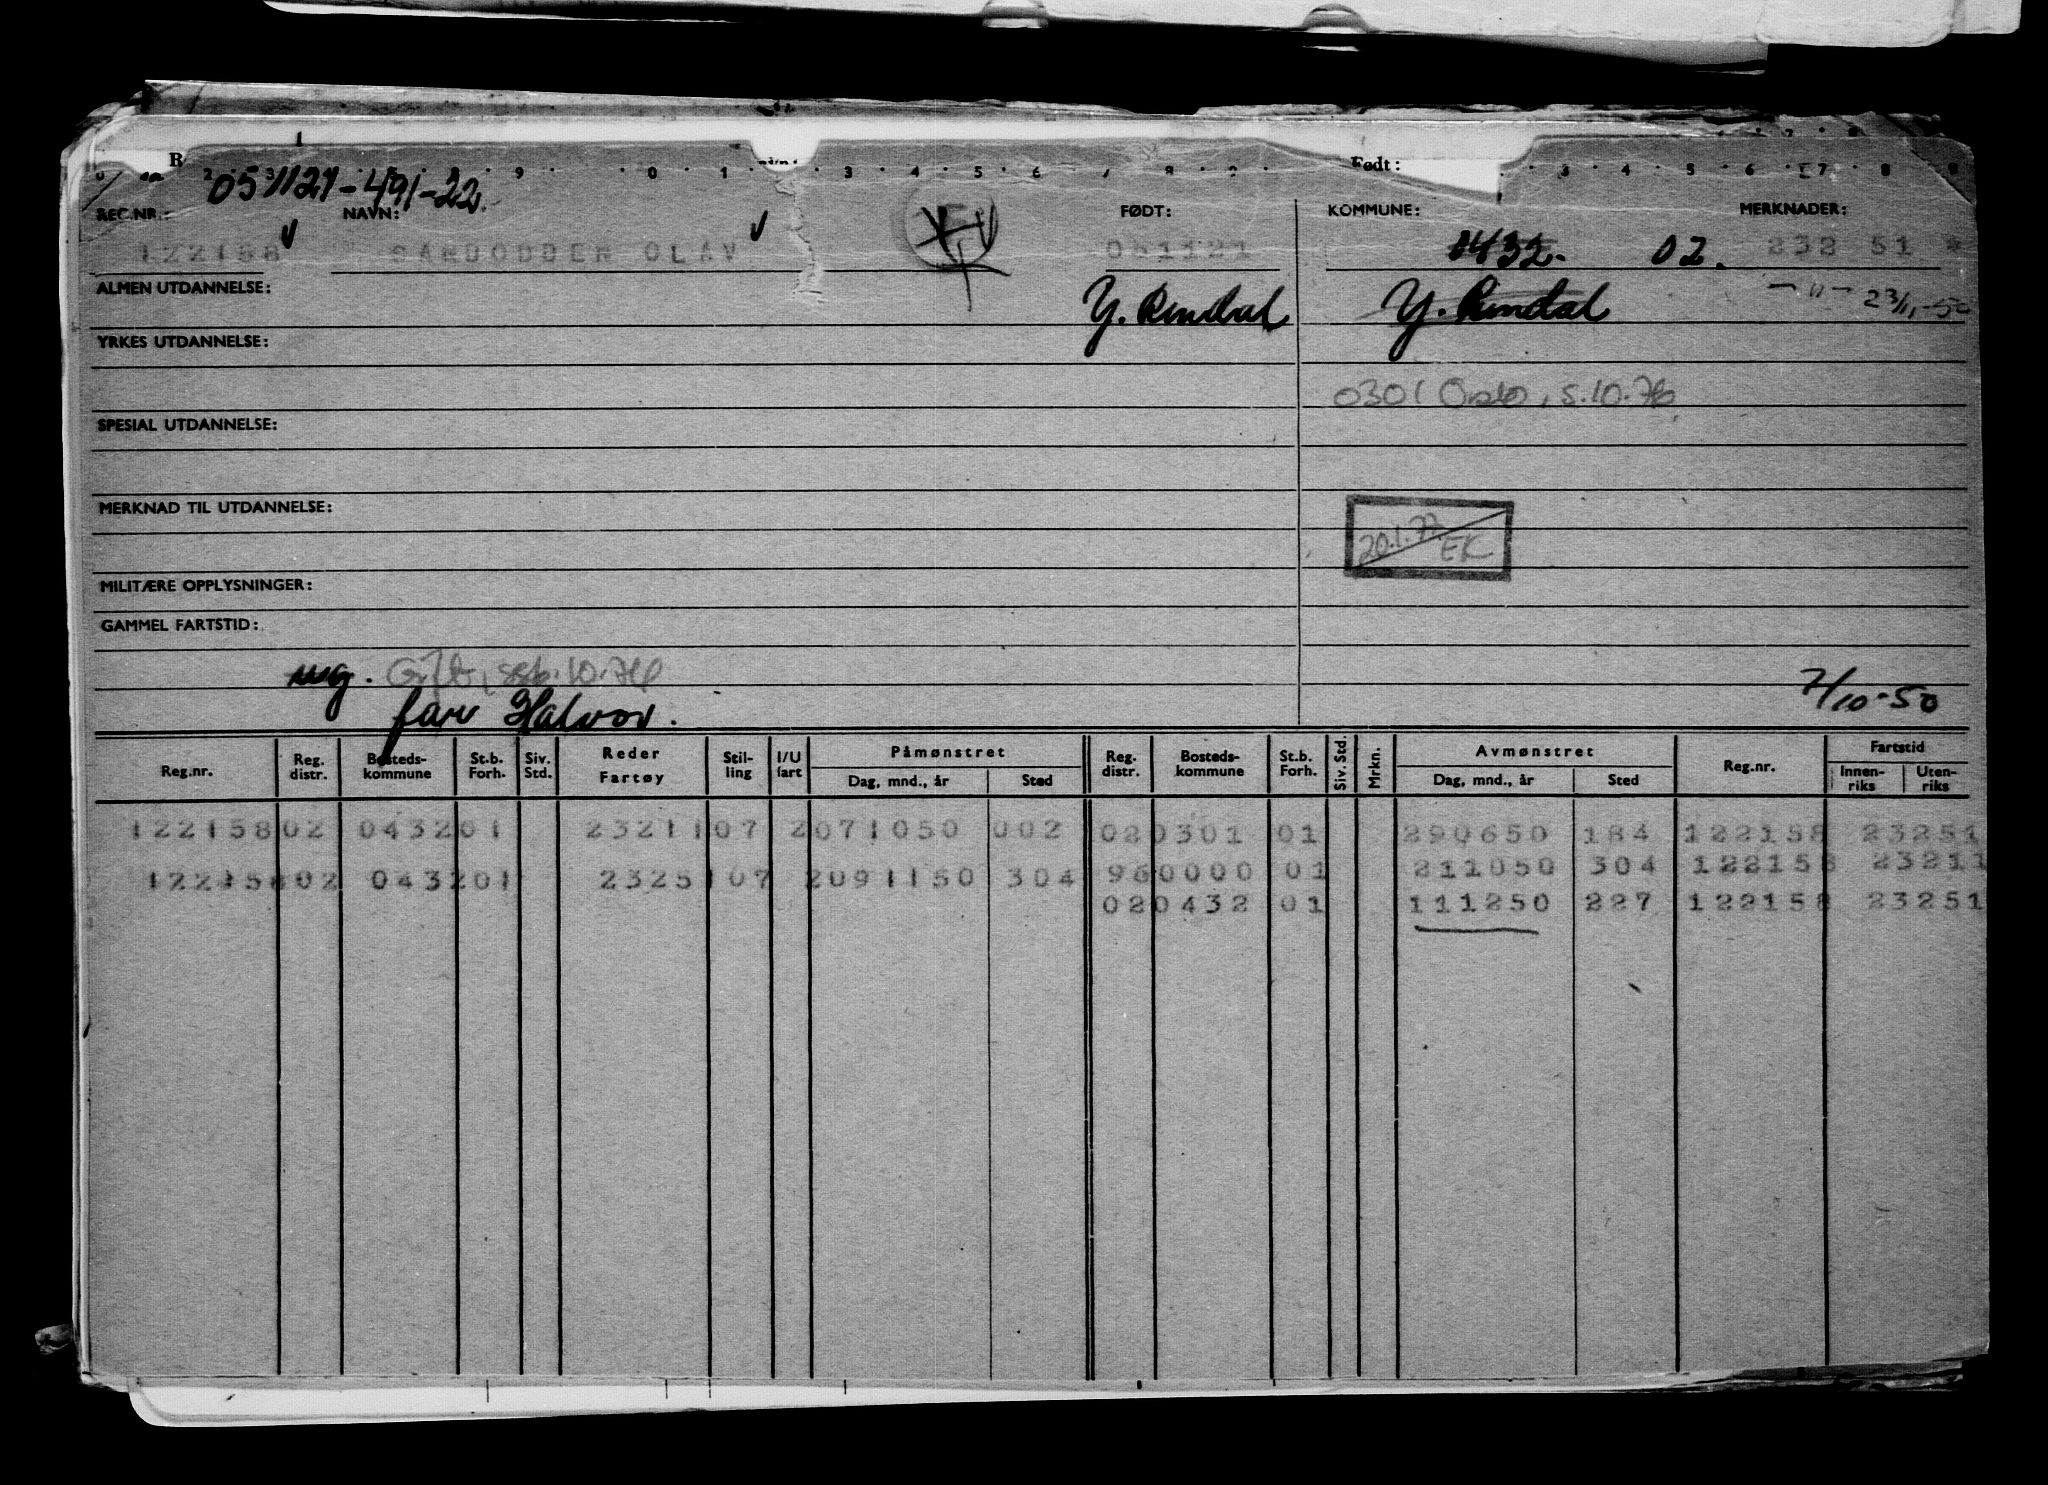 Født:
051121-491-22
REG.NR.: NAVN: FØDT: KOMMUNE: MERKNADER:
122158 OLAV 051121 0432. 02. 232 51 *
ALMEN UTDANNELSE: Y. Rendal Y. Rendal -"- 23/11-50
YRKES UTDANNELSE:
0301 Oslo, 5.10.76
SPESIAL UTDANNELSE:
MERKNAD TIL UTDANNELSE:
20.1.77 EK
MILITÆRE OPPLYSNINGER:
GAMMEL FARTSTID:
ug. Gift, 10.76
far Halvor. 7/10-50
Reg.nr. Reg. distr. Bosteds- kommune St.b. Forh. Siv. Std. Reder Fartøy Stil- ling I/U fart Påmønstret Dag, mnd., år Sted Reg. distr. Bosteds- kommune St.b. Forh. Siv. Std. Mrkn. Avmønstret Dag, mnd., år Sted Reg.nr. Fartstid Innen- riks Uten- riks
122158 02 0432 01 23211 07 2 071050 002 02 0301 01 290650 184 122158 23251
96 0000 01 211050 304 122158 23211
122158 02 0432 01 23251 07 2 091150 304
02 0432 01 111250 227 122158 23251